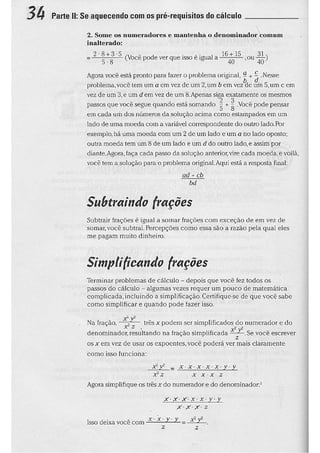 34 Parte II: Se aquecendo com os pré-requisitos do cálculo
2. Some os numeradores e mantenha o denominador comum
inalterado:
= 2·8+3·5 / 5·8 (Você pode ver que isso é igual a 16+15 / 40 , ou 31 / 40)
Agora você está pronto para fazer o problema original, a/b + c/d. Nesse
problema, você tem um a em vez de um 2, um b em vez de um 5, um c em
vez de um 3, e um d em vez de um 8. Apenas siga exatamente os mesmos
passos que você segue quando está somando 2/5 + 3/8. Você pode pensar
em cada um dos números da solução acima como estampados em um
lado de uma moeda com a variável correspondente do outro lado. Por
exemplo, há uma moeda com um 2 de um lado e um a no lado oposto;
outra moeda tem um 8 de um lado e um d do outro lado, e assim por
diante. Agora, faça cada passo da solução anterior, vire cada moeda, e voilà,
você tem a solução para o problema original. Aqui está a resposta final:
ad + cb
bd
Subtraindo frações
Subtrair frações é igual a somar frações com exceção de em vez de
somar, você subtrai. Percepções como essa são a razão pela qual eles
me pagam muito dinheiro.
Simplificando frações
Terminar problemas de cálculo – depois que você fez todos os
passos do cálculo – algumas vezes requer um pouco de matemática
complicada, incluindo a simplificação. Certifique-se de que você sabe
como simplificar e quando pode fazer isso.
Na fração, x⁵y² / x³z três x podem ser simplificados do numerador e do
denominador, resultando na fração simplificada x²y² / z. Se você escrever
os x em vez de usar os expoentes, você poderá ver mais claramente
como isso funciona:
x⁵y² / x³z = x · x · x · x · x · y · y / x · x · x · z
Agora simplifique os três x do numerador e do denominador:
x · x · x · x · x · y · y
x · x · x · z
Isso deixa você com x · x · y · y / z = x²y² / z.